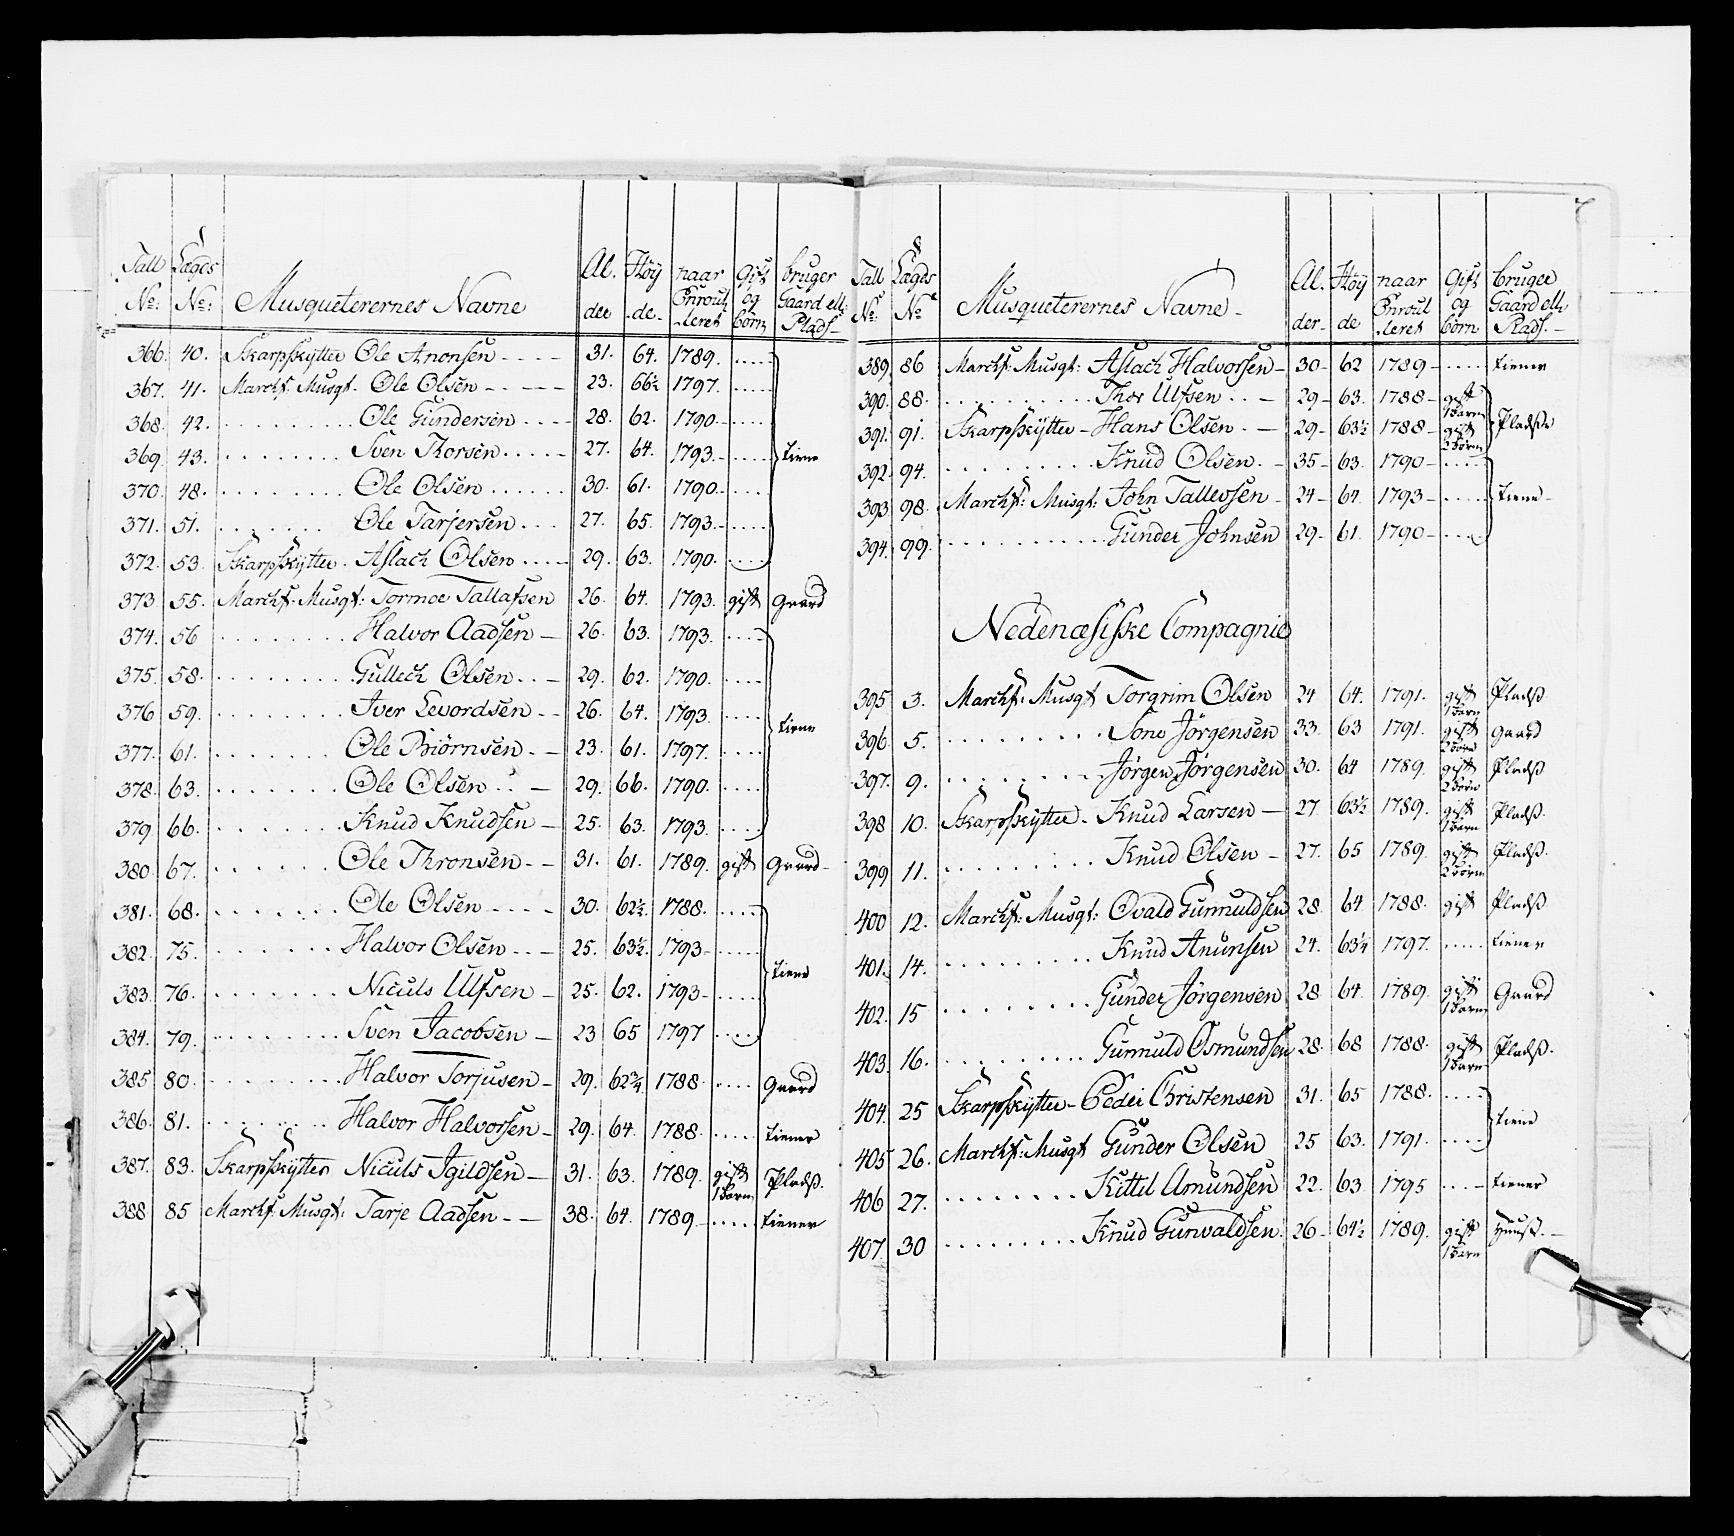 Tall No: Lægds No: Musqueterernes Navne Al. der Høy de naar Enroulleret Gift og børn bruger Gaard ell: Plads
366. 40. Skarpskytter Ole Anonsen 31. 64. 1789.
367. 41. Marchs: Musqt. Ole Olsen 23. 66½ 1797.
368. 42. Ole Gundersen 28. 62. 1790.
369. 43. Sven Thorsen 27. 64. 1793. tiene
370. 48. Ole Olsen 30. 61. 1790.
371. 51. Ole Tarjersen 27. 65. 1793.
372. 53. Skarpskytter Aslach Olsen 29. 63. 1790.
373 55. Marchs: Musqt: Tormoe Tallafsen 26. 64. 1793. gift Gaard
374. 56 Halvor Aadsen 26. 63. 1793.
375. 58. Gullech Olsen 29. 62. 1790.
376 59. Iver Levordsen 26. 64. 1793. tiene
377. 61. Ole Biørnsen 23. 61. 1797.
378. 63. Ole Olsen 29. 66. 1790.
379 66. Knud Knudsen 25. 63. 1793.
380. 67. Ole Thronsen 31. 61. 1789. gift Gaard
381. 68. Ole Olsen 30. 62½ 1788.
382. 75. Halvor Olsen 25. 63½ 1793
383. 76. Niculs Ulfsen 25. 62. 1793 tiene
384. 79. Sven Jacobsen 23 65 1797
385 80. Halvor Torjusen 29. 62¾ 1788 Gaard
386. 81. Halvor Halvorsen 29. 64. 1788. tiener
387. 83. Skarpskytter Niculs Igildsen 31. 63. 1789. gift 1 Barn Pladß.
388 85 Marchs: Musqt: Tarje Aadsen 38. 64. 1789 tiener
Tall No: Lægds No Musqueterernes Navne Al. der Høy de naar Enroulleret Gift og børn bruger Gaard ell: Plads.
389. 86 Marchs: Musqt: Aslach Halvorsen 30 62 1789 tiener
390. 88. Thor Ulfsen 29 63. 1788 gift 1 Barn
391. 91. Skarpskytter Hans Olsen 29 63½ 1788 gift 2 Børn Pladße
392. 94. Knud Olsen 35 63. 1790
393 98. Marchs: Musqt: John Tallevsen 24 64. 1793 tiene
394. 99. Gunder Johnsen 29 61. 1790
Nedenæsiske Compagnie
395 3. Marchs: Musqt Torgrim Olsen 24 64. 1791. gift 1 Barn Pladß
396. 5. Tone Jørgensen 33. 63 1791. gift 2 Børn Gaard
397. 9. Jørgen Jørgensen 30. 64 1789. gift 2 Børn Pladß
398 10. Skarpskytter Knud Larsen 27 63½ 1789. gift 1 Barn Pladß.
399 11. Knud Olsen 27. 65 1789. gift 2 Børn Pladß.
400 12. Marchs: Musqt: Ovald Gunnuldsen 28. 64 1788. gift Pladß
401. 14. Knud Anunsen 24. 63¼ 1797. tiener
402. 15 Gunder Jørgensen 28 64. 1789. gift 1 Barn Gaard
403. 16. Gunnuld Osmundsen 28. 68 1788. gift 1 Barn Pladß.
404. 25 Skarpskytter Peder Christensen 31. 65 1788.
405 26. Marchs: Musqt Gunder Olsen 25 63. 1791. tiene
406 27. Kittil Amundsen 22. 63. 1795 tiener
407. 30 Knud Gunvaldsen 26 64½ 1789. gift 1 Barn Huuß.